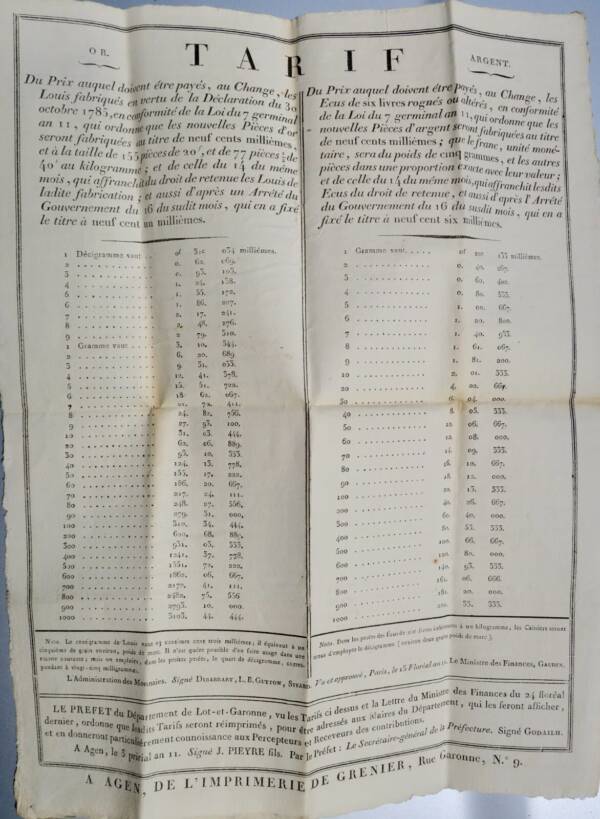 OR.
TARIF
ARGENT.
Du Prix auquel doivent être payés, au Change, les
Louis fabriqués en vertu de la Déclaration du 30
octobre 1785, en conformité de la Loi du 7 germinal
an 11, qui ordonne que les nouvelles Pièces d'or
seront fabriquées au titre de neuf cents millièmes,
et à la taille de 155 pièces de 20f, et de 77 pièces ½ de
40f au kilogramme; et de celle du 14 du même
mois, qui affranchit du droit de retenue les Louis de
ladite fabrication; et aussi d'après un Arrêté du
Gouvernement du 16 du susdit mois, qui en a fixé
le titre à neuf cent un millièmes.
1 Décigramme vaut . . 0f 31c 034 millièmes.
2 . . . 0. 62. 069.
3 . . . 0. 93. 103.
4 . . . 1. 24. 138.
5 . . . 1. 55. 172.
6 . . . 1. 86. 207.
7 . . . 2. 17. 241.
8 . . . 2. 48. 276.
9 . . . 2. 79. 310.
1 Gramme vaut . . . 3. 10. 344.
2 . . . 6. 20. 689
3 . . . 9. 31. 033.
4 . . . 12. 41. 378.
5 . . . 15. 51. 722.
6 . . . 18. 62. 067.
7 . . . 21. 72. 411.
8 . . . 24. 82. 756.
9 . . . 27. 93. 100.
10 . . . 31. 03. 444.
20 . . . 62. 06. 889.
30 . . . 93. 10. 333.
40 . . . 124. 13. 778.
50 . . . 155. 17. 222.
60 . . . 186. 20. 667.
70 . . . 217. 24. 111.
80 . . . 248. 27. 556.
90 . . . 279. 31. 000.
100 . . . 310. 34. 444.
200 . . . 620. 68. 889.
300 . . . 931. 03. 333.
400 . . . 1241. 37. 778.
500 . . . 1551. 72. 222.
600 . . . 1862. 06. 667.
700 . . . 2172. 41. 111.
800 . . . 2482. 75. 556
900 . . . 2793. 10. 000
1000 . . . 3103. 44. 444.
Du Prix auquel doivent être payés, au Change, les
Ecus de six livres rognés ou altérés, en conformité
de la Loi du 7 germinal an 11, qui ordonne que les
nouvelles Pièces d'argent seront fabriquées au titre
de neuf cents millièmes; que le franc, unité moné-
taire, sera du poids de cinq grammes, et les autres
pièces dans une proportion exacte avec leur valeur;
et de celle du 14 du même mois, qui affranchit lesdits
Ecus du droit de retenue, et aussi d'après l'Arrêté
du Gouvernement du 16 du susdit mois, qui en a
fixé le titre à neuf cent six millièmes.
1 Gramme vaut . . . 0f 20c 133 millièmes.
2 . . . 0. 40. 267.
3 . . . 0. 60. 400.
4 . . . 0. 80. 533.
5 . . . 1. 00. 667.
6 . . . 1. 20. 800.
7 . . . 1. 40. 933.
8 . . . 1. 61. 067.
9 . . . 1. 81. 200.
10 . . . 2. 01. 333.
20 . . . 4. 02. 667.
30 . . . 6. 04. 000.
40 . . . 8. 05. 333.
50 . . . 10. 06. 667.
60 . . . 12. 08. 000.
70 . . . 14. 09. 333.
80 . . . 16. 10. 667.
90 . . . 18. 12. 000.
100 . . . 20. 13. 333.
200 . . . 40. 26. 667.
300 . . . 60. 40. 000.
400 . . . 80. 53. 333.
500 . . . 100. 66. 667.
600 . . . 120. 80. 000.
700 . . . 140. 93. 333.
800 . . . 161. 06. 666.
900 . . . 181. 20. 000.
1000 . . . 201. 33. 333.
Nota. Le centigramme de Louis vaut 03 centimes cent trois millièmes; il équivaut à un
cinquième de grain environ, poids de marc. Il n'est guère possible d'en faire usage dans une
caisse courante; mais on emploiera, dans les petites pesées, le quart de décigramme, corres-
pondant à vingt-cinq milligrammes.
L'Administration des Monnaies. Signé Dibarrart, L. E. Guyton,
Nota. Dans les pesées des Ecus de six livres inférieures à un kilogramme, les Caissiers seront
tenus d'employer le décigramme (environ deux grains poids de marc).
Vu et approuvé, Paris, le 15 Floréal an 11. Le Ministre des Finances, Gaudin.
LE PREFET du Département de Lot-et-Garonne, vu les Tarifs ci dessus et la Lettre du Ministre des Finances du 24 floréal
dernier, ordonne que lesdits Tarifs seront réimprimés, pour être adressés aux Maires du Département, qui les feront afficher,
et en donneront particulièrement connoissance aux Percepteurs et Receveurs des contributions.
A Agen, le 3 prairial an 11. Signé J. PIEYRE fils. Par le Préfet: Le Secrétaire-général de la Préfecture. Signé Godailh.
A AGEN, DE L'IMPRIMERIE DE GRENIER, Rue Garonne, N.° 9.